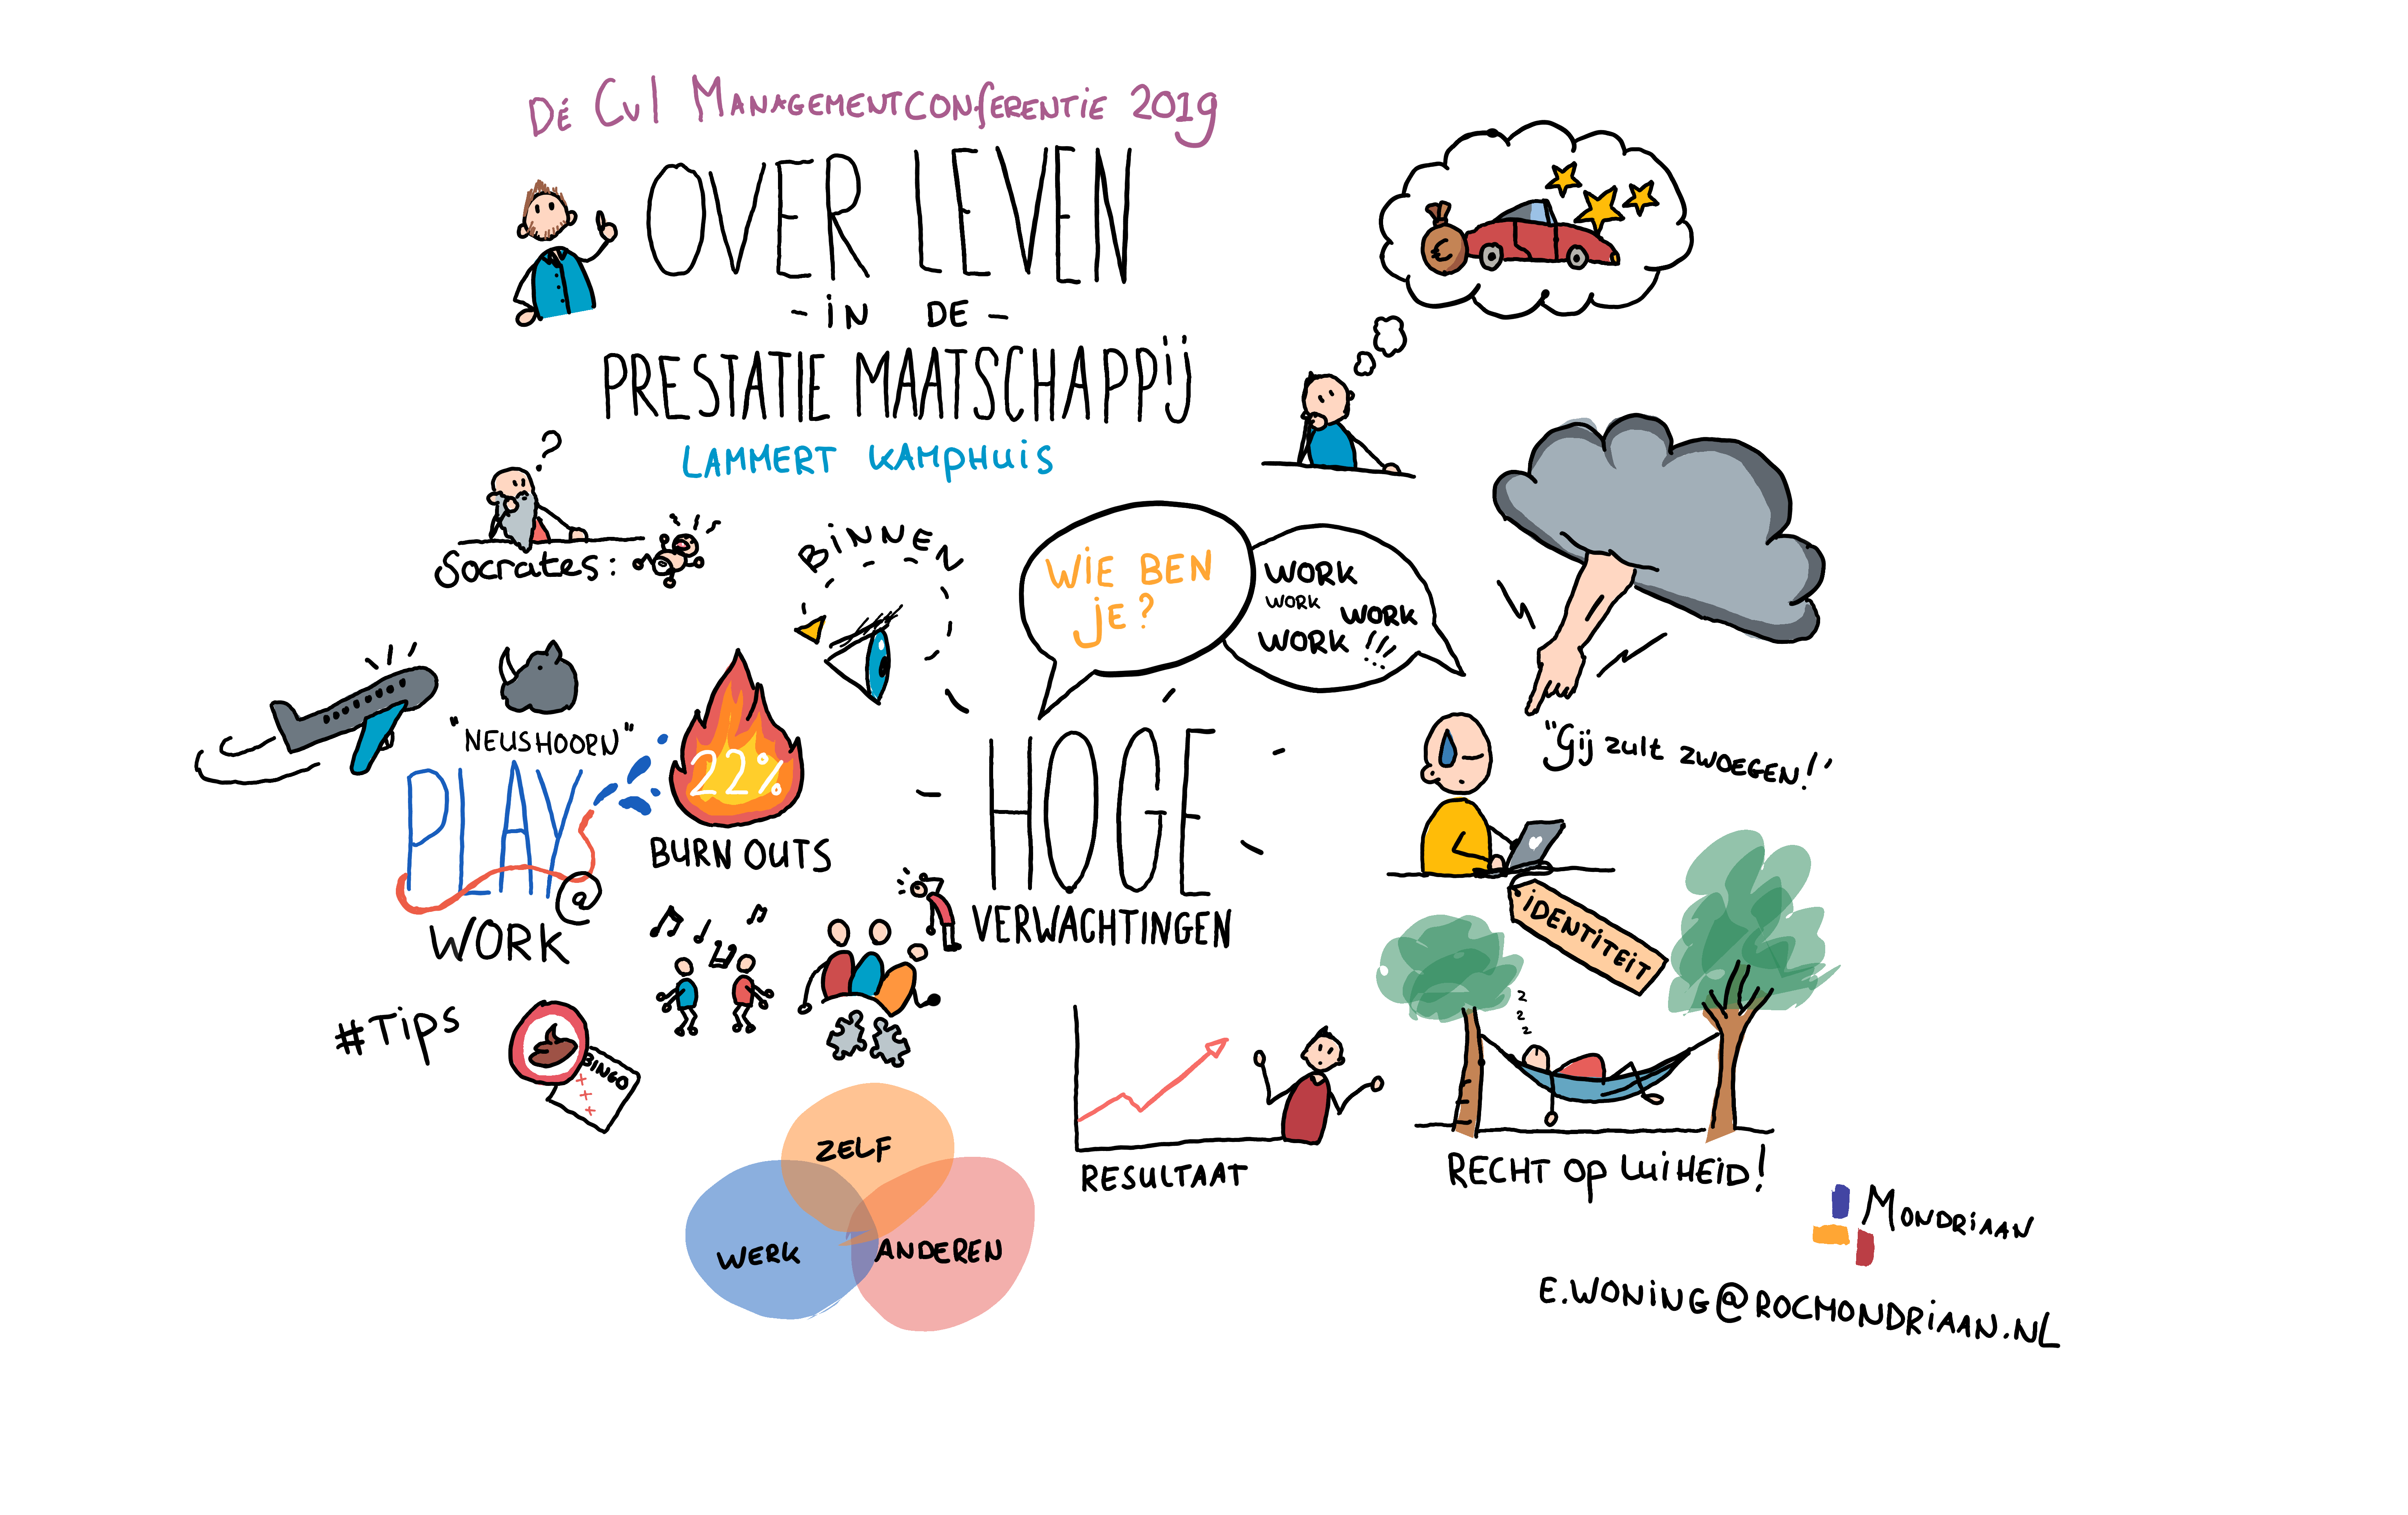 Dé CvI Managementconferentie 2019
OVER LEVEN
- iN DE -
PRESTATIE MAATSCHAPPij
LAMMERT KAMPHUIS
?
Socrates:
BiNNEN
WiE BEN
jE?
WORK
WORK WORK
WORK !!!
"NEUSHOORN"
PLAY
@
WORK
22%
BURN OUTS
HOGE
VERWACHTINGEN
"Gij zult zwoegen!"
iDENTiTEiT
#Tips
BINGO
x
x
x
z
z
z
ZELF
WERK
ANDEREN
RESULTAAT
RECHT Op LUiHEiD!
MONDRiAAN
E.WONiNG@ROCMONDRiAAN.NL
€